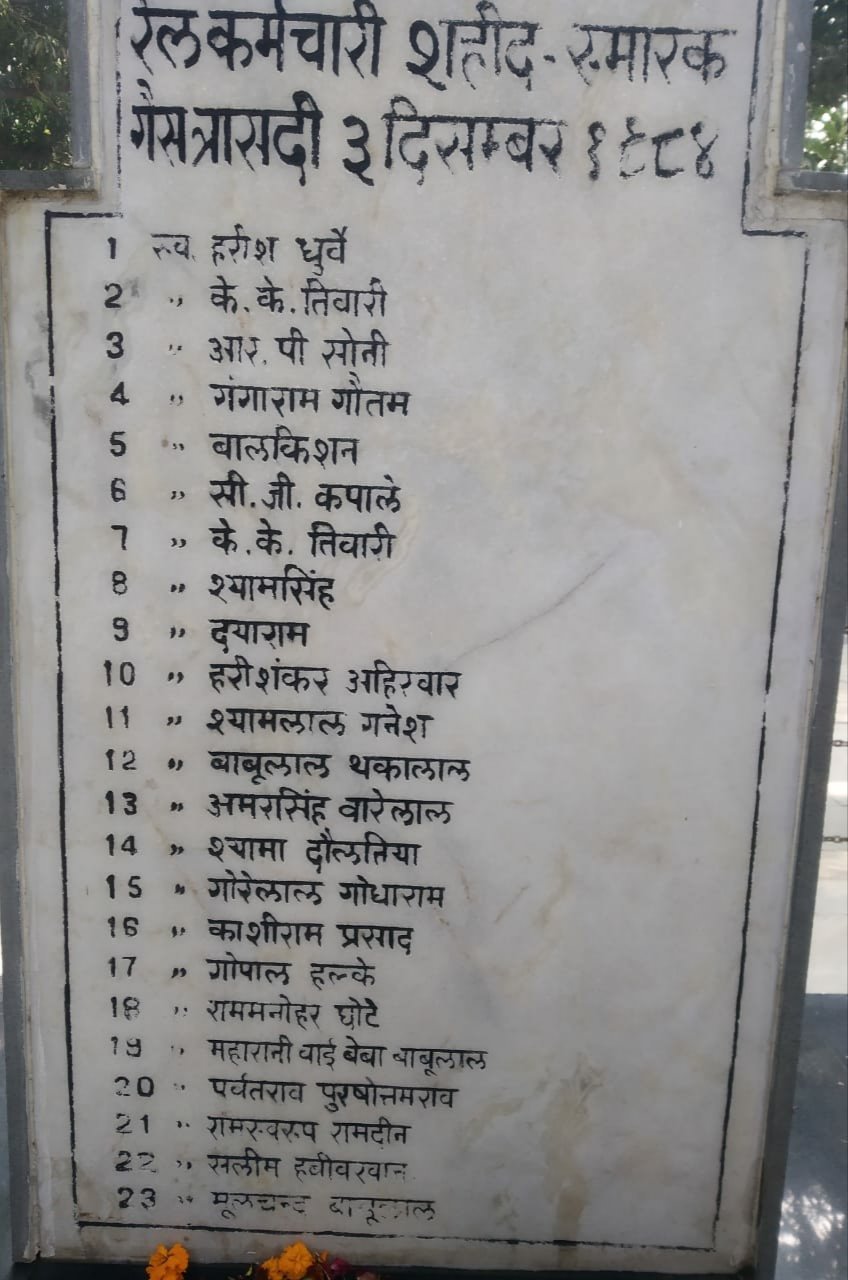 रेलकर्मचारी शहीद-स्मारक
गैसत्रासदी ३ दिसम्बर १९८४
1 स्व. हरीश धुर्वे
2 ,, के.के.तिवारी
3 ,, आर.पी सोनी
4 ,, गंगाराम गौतम
5 ,, बालकिशन
6 ,, सी.जी.कपाले
7 ,, के.के. तिवारी
8 ,, श्यामसिंह
9 ,, दयाराम
10 ,, हरीशंकर अहिरवार
11 ,, श्यामलाल गनेश
12 ,, बाबूलाल थकालाल
13 ,, अमरसिंह वारेलाल
14 ,, श्यामा दौलतिया
15 ,, गोरेलाल गोधाराम
16 ,, काशीराम प्रसाद
17 ,, गोपाल हल्के
18 ,, राममनोहर घोटे
19 ,, महारानी वाई बेबा बाबूलाल
20 ,, पर्वतराव पुरषोत्तमराव
21 ,, रामस्वरुप रामदीन
22 ,, सलीम हबीवखान
23 ,, मूलचन्द बाबूलाल